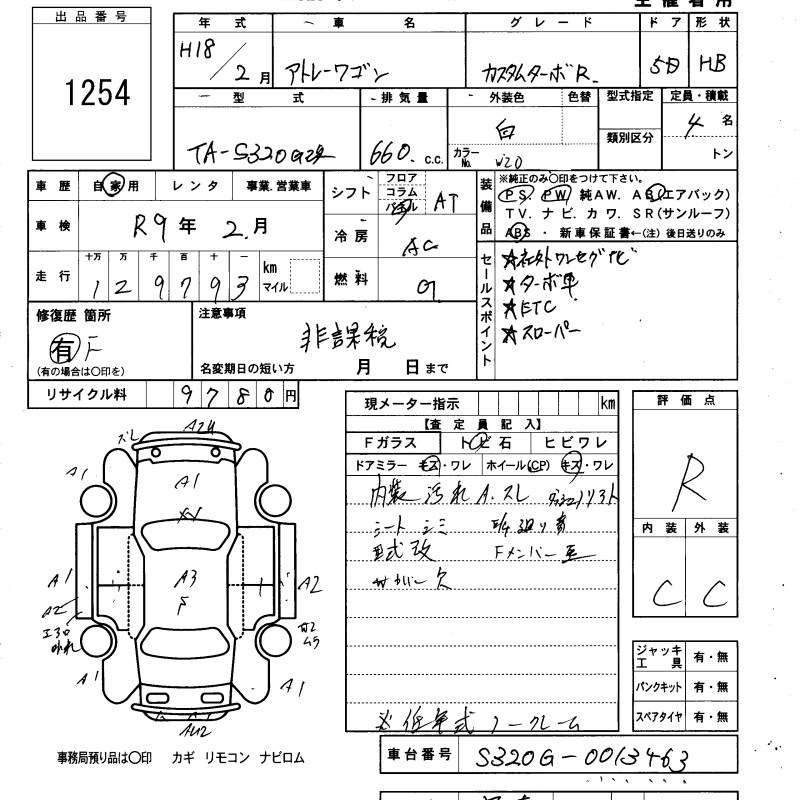 出品番号
1254
年式 車名 グレード ドア 形状
H18/2月 アトレーワゴン カスタムターボR. 5D HB
型式 排気量 外装色 色替 型式指定 定員・積載
類別区分
TA-S320G改 660. c.c. 白 カラーNo. W20 4名
トン
車歴 自家用 レンタ 事業.営業車
シフト フロア コラム AT
装備品 ※純正のみ〇印をつけて下さい。
PS. PW 純AW. (エアバック)
TV. ナビ. カワ. SR(サンルーフ)
ABS ・ 新車保証書←(注)後日送りのみ
車検 R9年 2.月
冷房 AC
走行 十万 万 千 百 十 一
129793 km マイル
燃料 G
セールスポイント
★社外ワンセグナビ
★ターボ車
★ETC
★スロ-パー
修復歴 箇所
有
(有の場合は〇印を)
注意事項
非課税
名変期日の短い方 月 日まで
リサイクル料 9780円
現メーター指示 km
【査定員記入】
Fガラス トビ石 ヒビワレ
ドアミラー キズ・ワレ ホイール(CP) キズ・ワレ
内装汚れ A.スレ
シート シミ
型式改 Fメンバー歪
欠
低年式 ノークレーム
評価点
R
内装 外装
C C
ジャッキ工具 有・無
パンクキット 有・無
スペアタイヤ 有・無
A1
A1
A1
A3
A1
A2
A2
エアロ
外れ
ムラ
A1
A1
事務局預り品は〇印 カギ リモコン ナビロム
車台番号 S320G-0013463